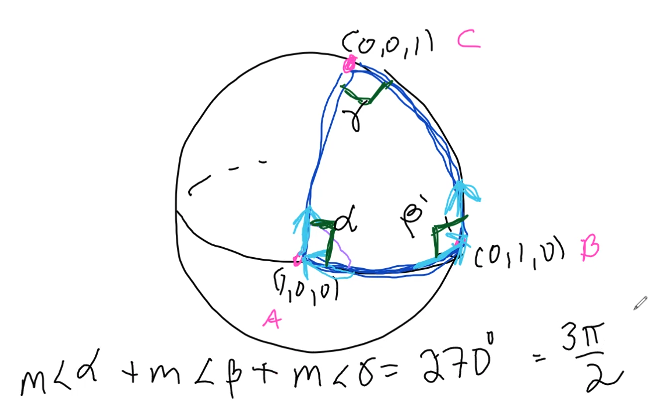 (0,0,1) C
γ
α β
(0,1,0) B
(1,0,0)
A
m∠α + m∠β + m∠γ = 270° = 3π/2